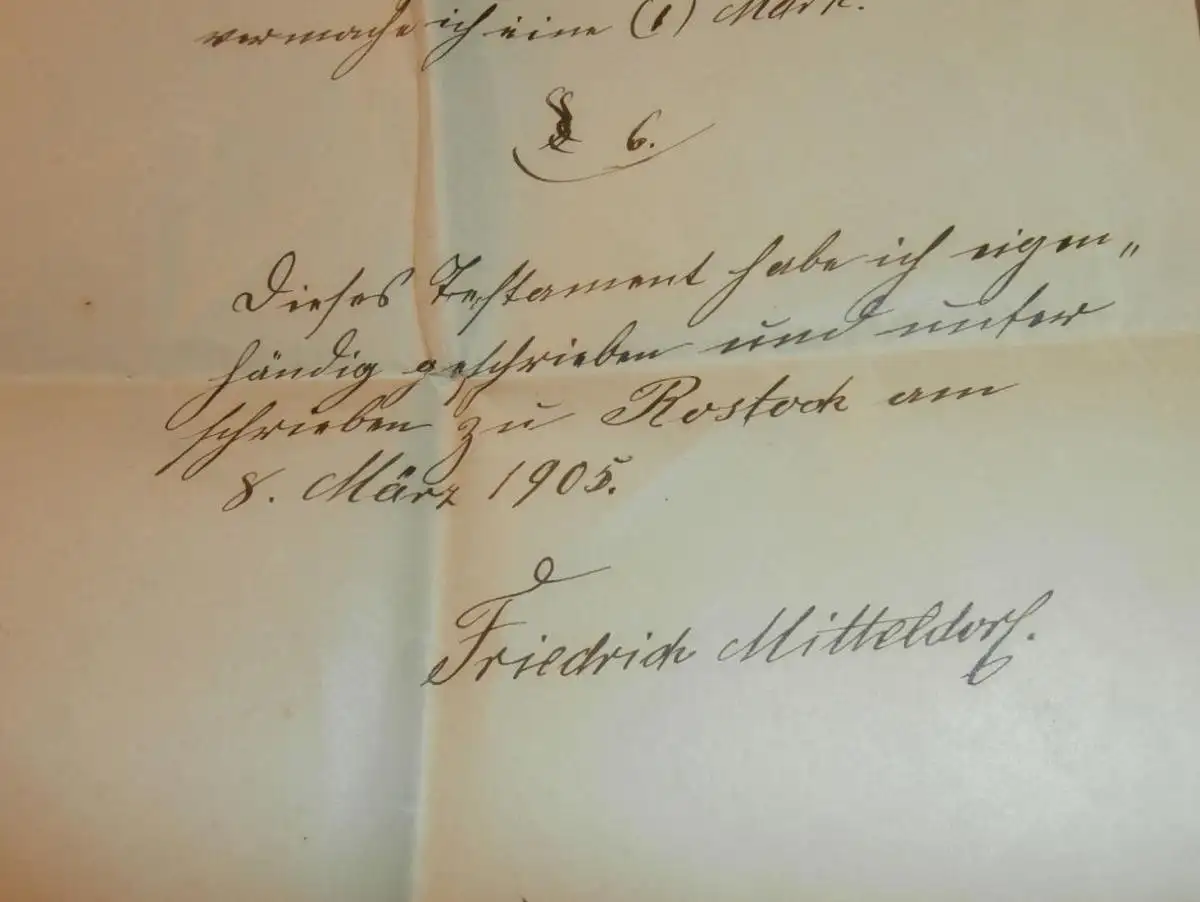 vermache ich eine (1) Mark.
§ 6.
Dieses Testament habe ich eigen„
händig geschrieben und unter
schrieben zu Rostock am
8. März 1905.
Friedrich Mitteldorf.